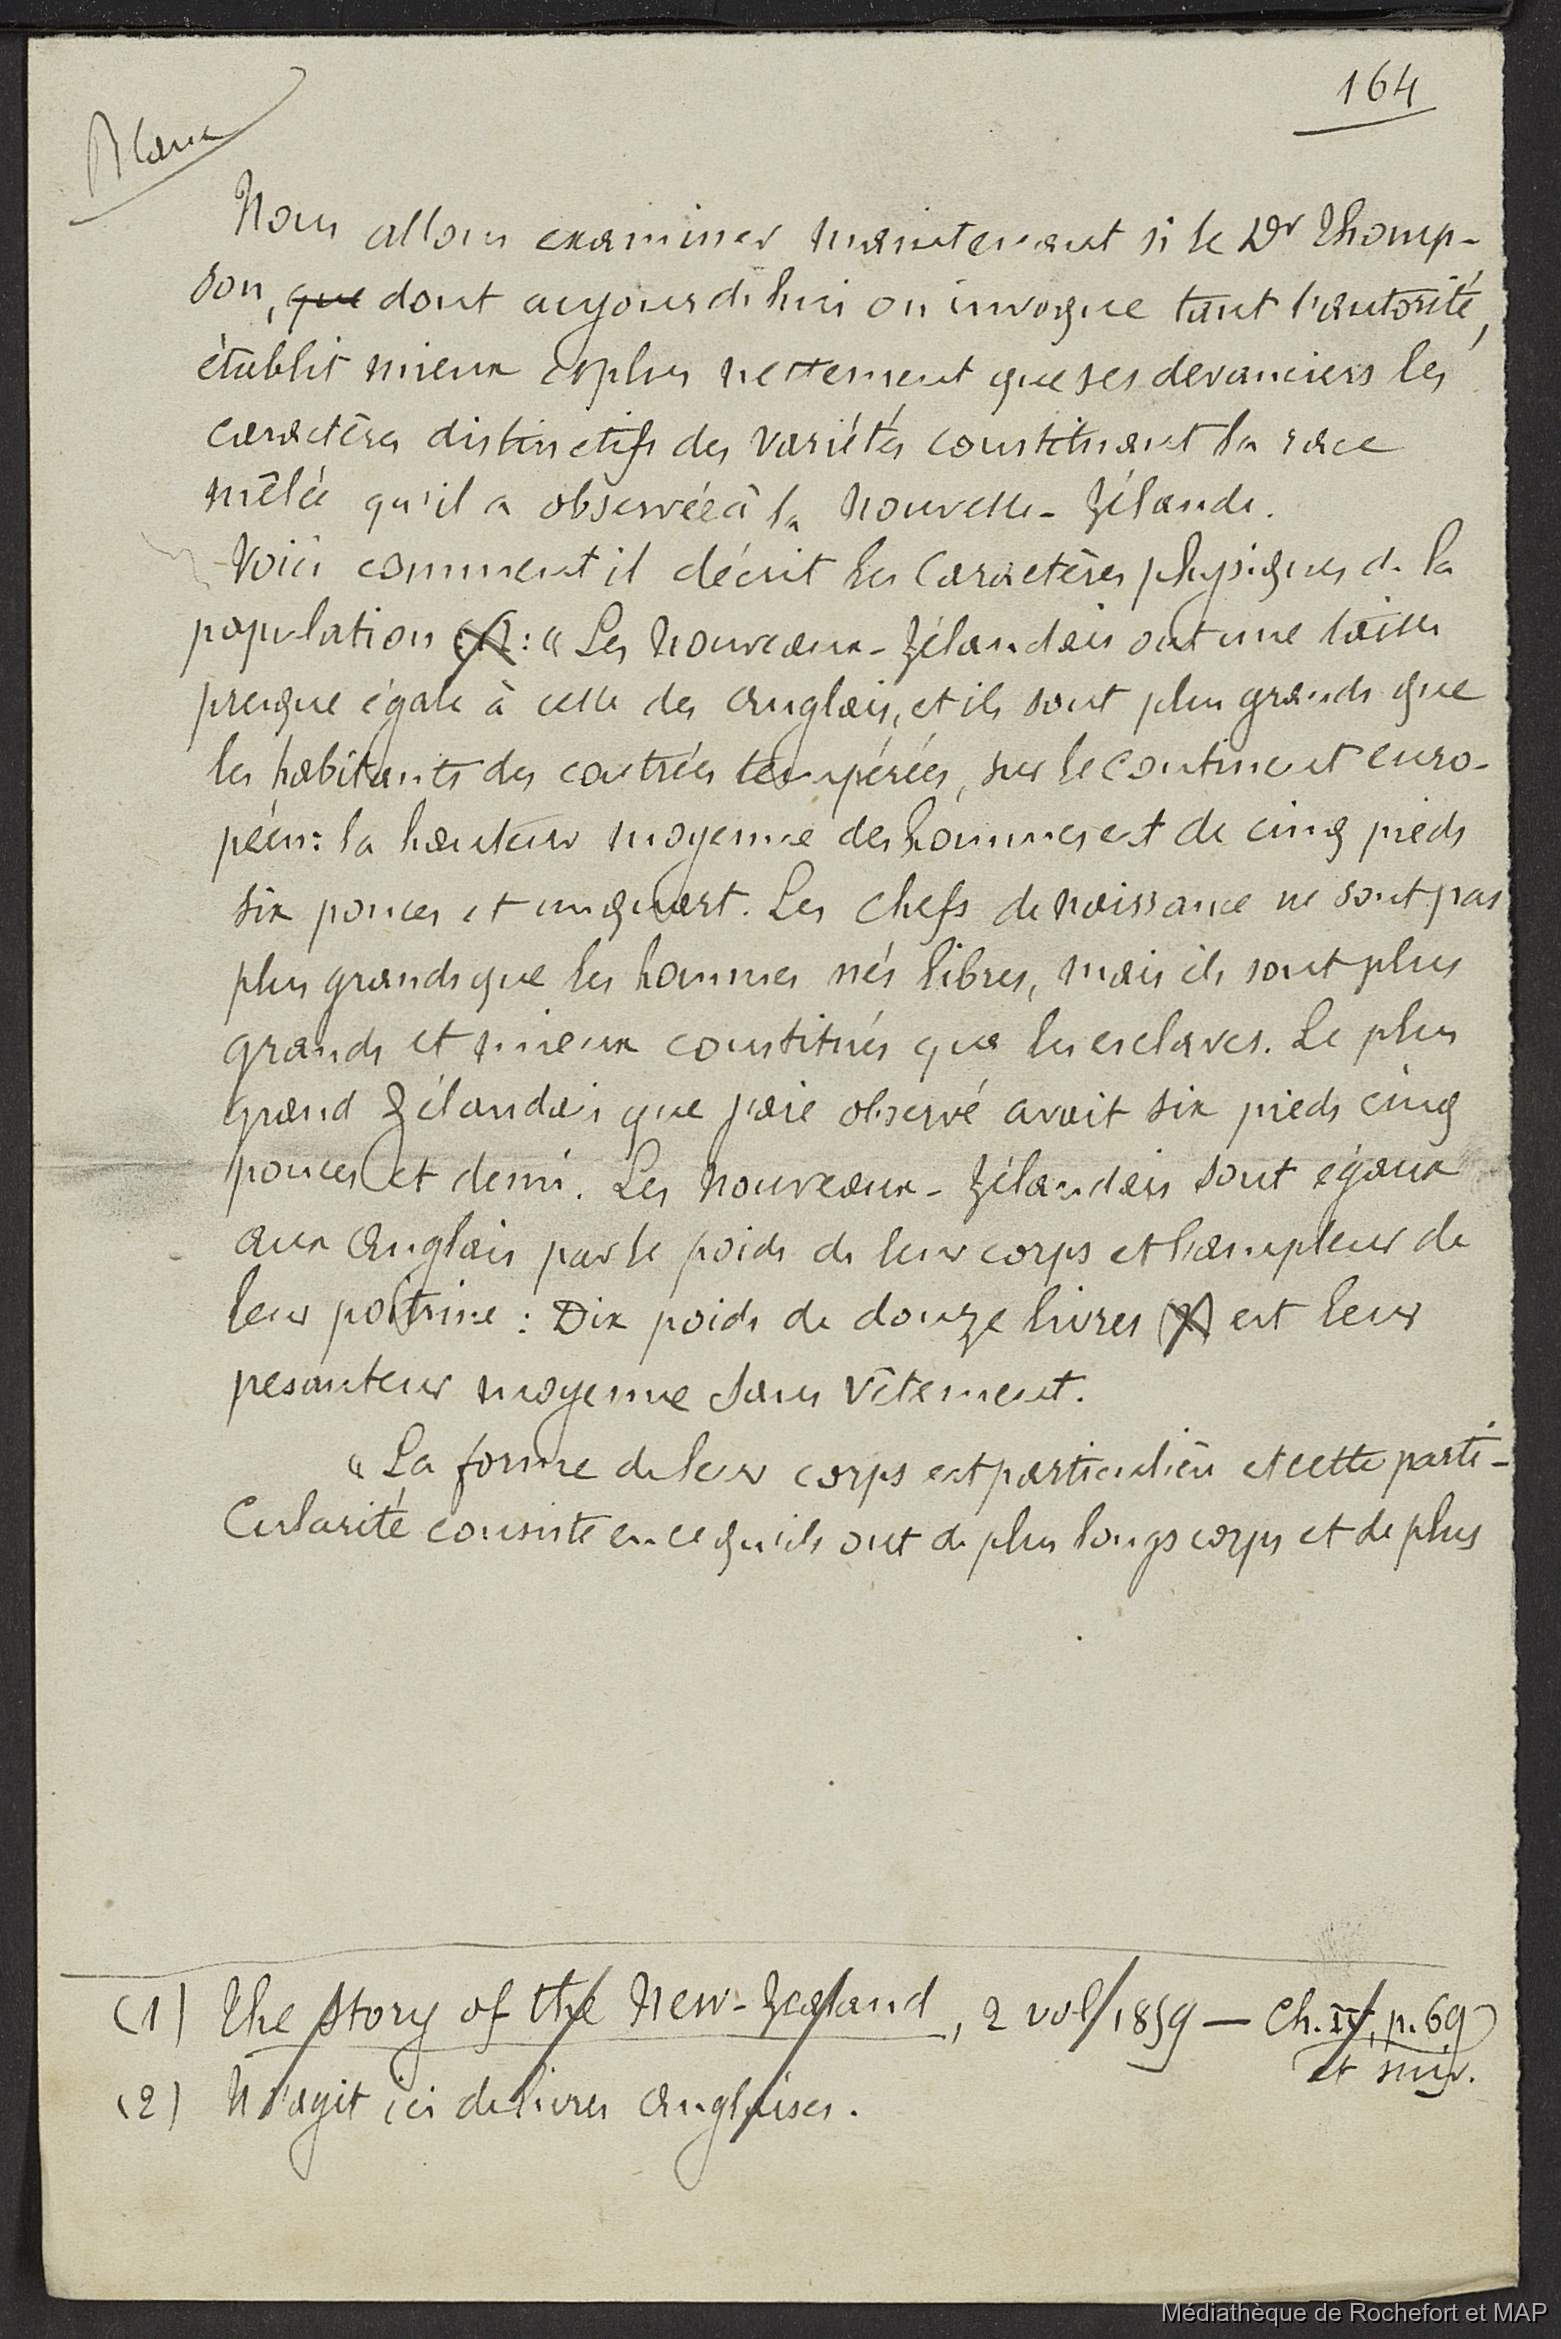 164
Blanc
Nous allons examiner maintenant si le Dr Thomp-
son, que dont aujourd'hui on invoque tant l'autorité,
établit mieux et plus nettement que ses devanciers les
caractères distinctifs des variétés constituant la race
mêlée qu'il a observée à la Nouvelle-Zélande.
Voici comment il décrit les caractères physiques de la
population (1) : « Les Nouveaux-Zélandais ont une taille
presque égale à celle des Anglais, et ils sont plus grands que
les habitants des contrées tempérées, sur le continent euro-
péen : la hauteur moyenne des hommes est de cinq pieds
six pouces et un quart. Les chefs de naissance ne sont pas
plus grands que les hommes nés libres, mais ils sont plus
grands et mieux constitués que les esclaves. Le plus
grand Zélandais que j'aie observé avait six pieds cinq
pouces et demi. Les Nouveaux-Zélandais sont égaux
aux Anglais par le poids de leur corps et l'ampleur de
leur poitrine : Dix poids de douze livres (2) est leur
pesanteur moyenne sans vêtement.
« La forme de leur corps est particulière et cette parti-
cularité consiste en ce qu'ils ont de plus longs corps et de plus
(1) The story of the New-Zealand, 2 vol, 1859 — Ch. IV, p. 69
et suiv.
(2) Il s'agit ici de livres anglaises.
Médiathèque de Rochefort et MAP